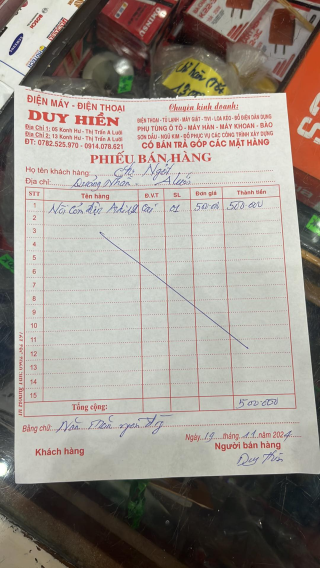 ĐIỆN MÁY - ĐIỆN THOẠI
DUY HIỀN
Địa Chỉ 1: 05 Konh Hư - Thị Trấn A Lưới
Địa Chỉ 2: 13 Konh Hư - Thị Trấn A Lưới
ĐT: 0782.525.970 - 0914.078.621
Chuyên kinh doanh:
ĐIỆN THOẠI - TỦ LẠNH - MÁY GIẶT - TIVI - LOA KÉO - ĐỒ ĐIỆN DÂN DỤNG
PHỤ TÙNG Ô TÔ - MÁY HÀN - MÁY KHOAN - BÀO
SƠN DẦU - NGŨ KIM - ĐỒ PHỤC VỤ CÁC CÔNG TRÌNH XÂY DỰNG
CÓ BÁN TRẢ GÓP CÁC MẶT HÀNG
PHIẾU BÁN HÀNG
Họ tên khách hàng:
Địa chỉ: A Lưới
STT Tên hàng Đ.V.T SL Đơn giá Thành tiền
1 Nồi Cơm điện Cái 01 500.000
2
3
4
5
6
7
8
9
10
11
12
13
14
15
Tổng cộng: 500.000
Bằng chữ: Năm trăm ngàn đồng
Ngày 19 tháng 11 năm 2024
Khách hàng Người bán hàng
Duy Hiền